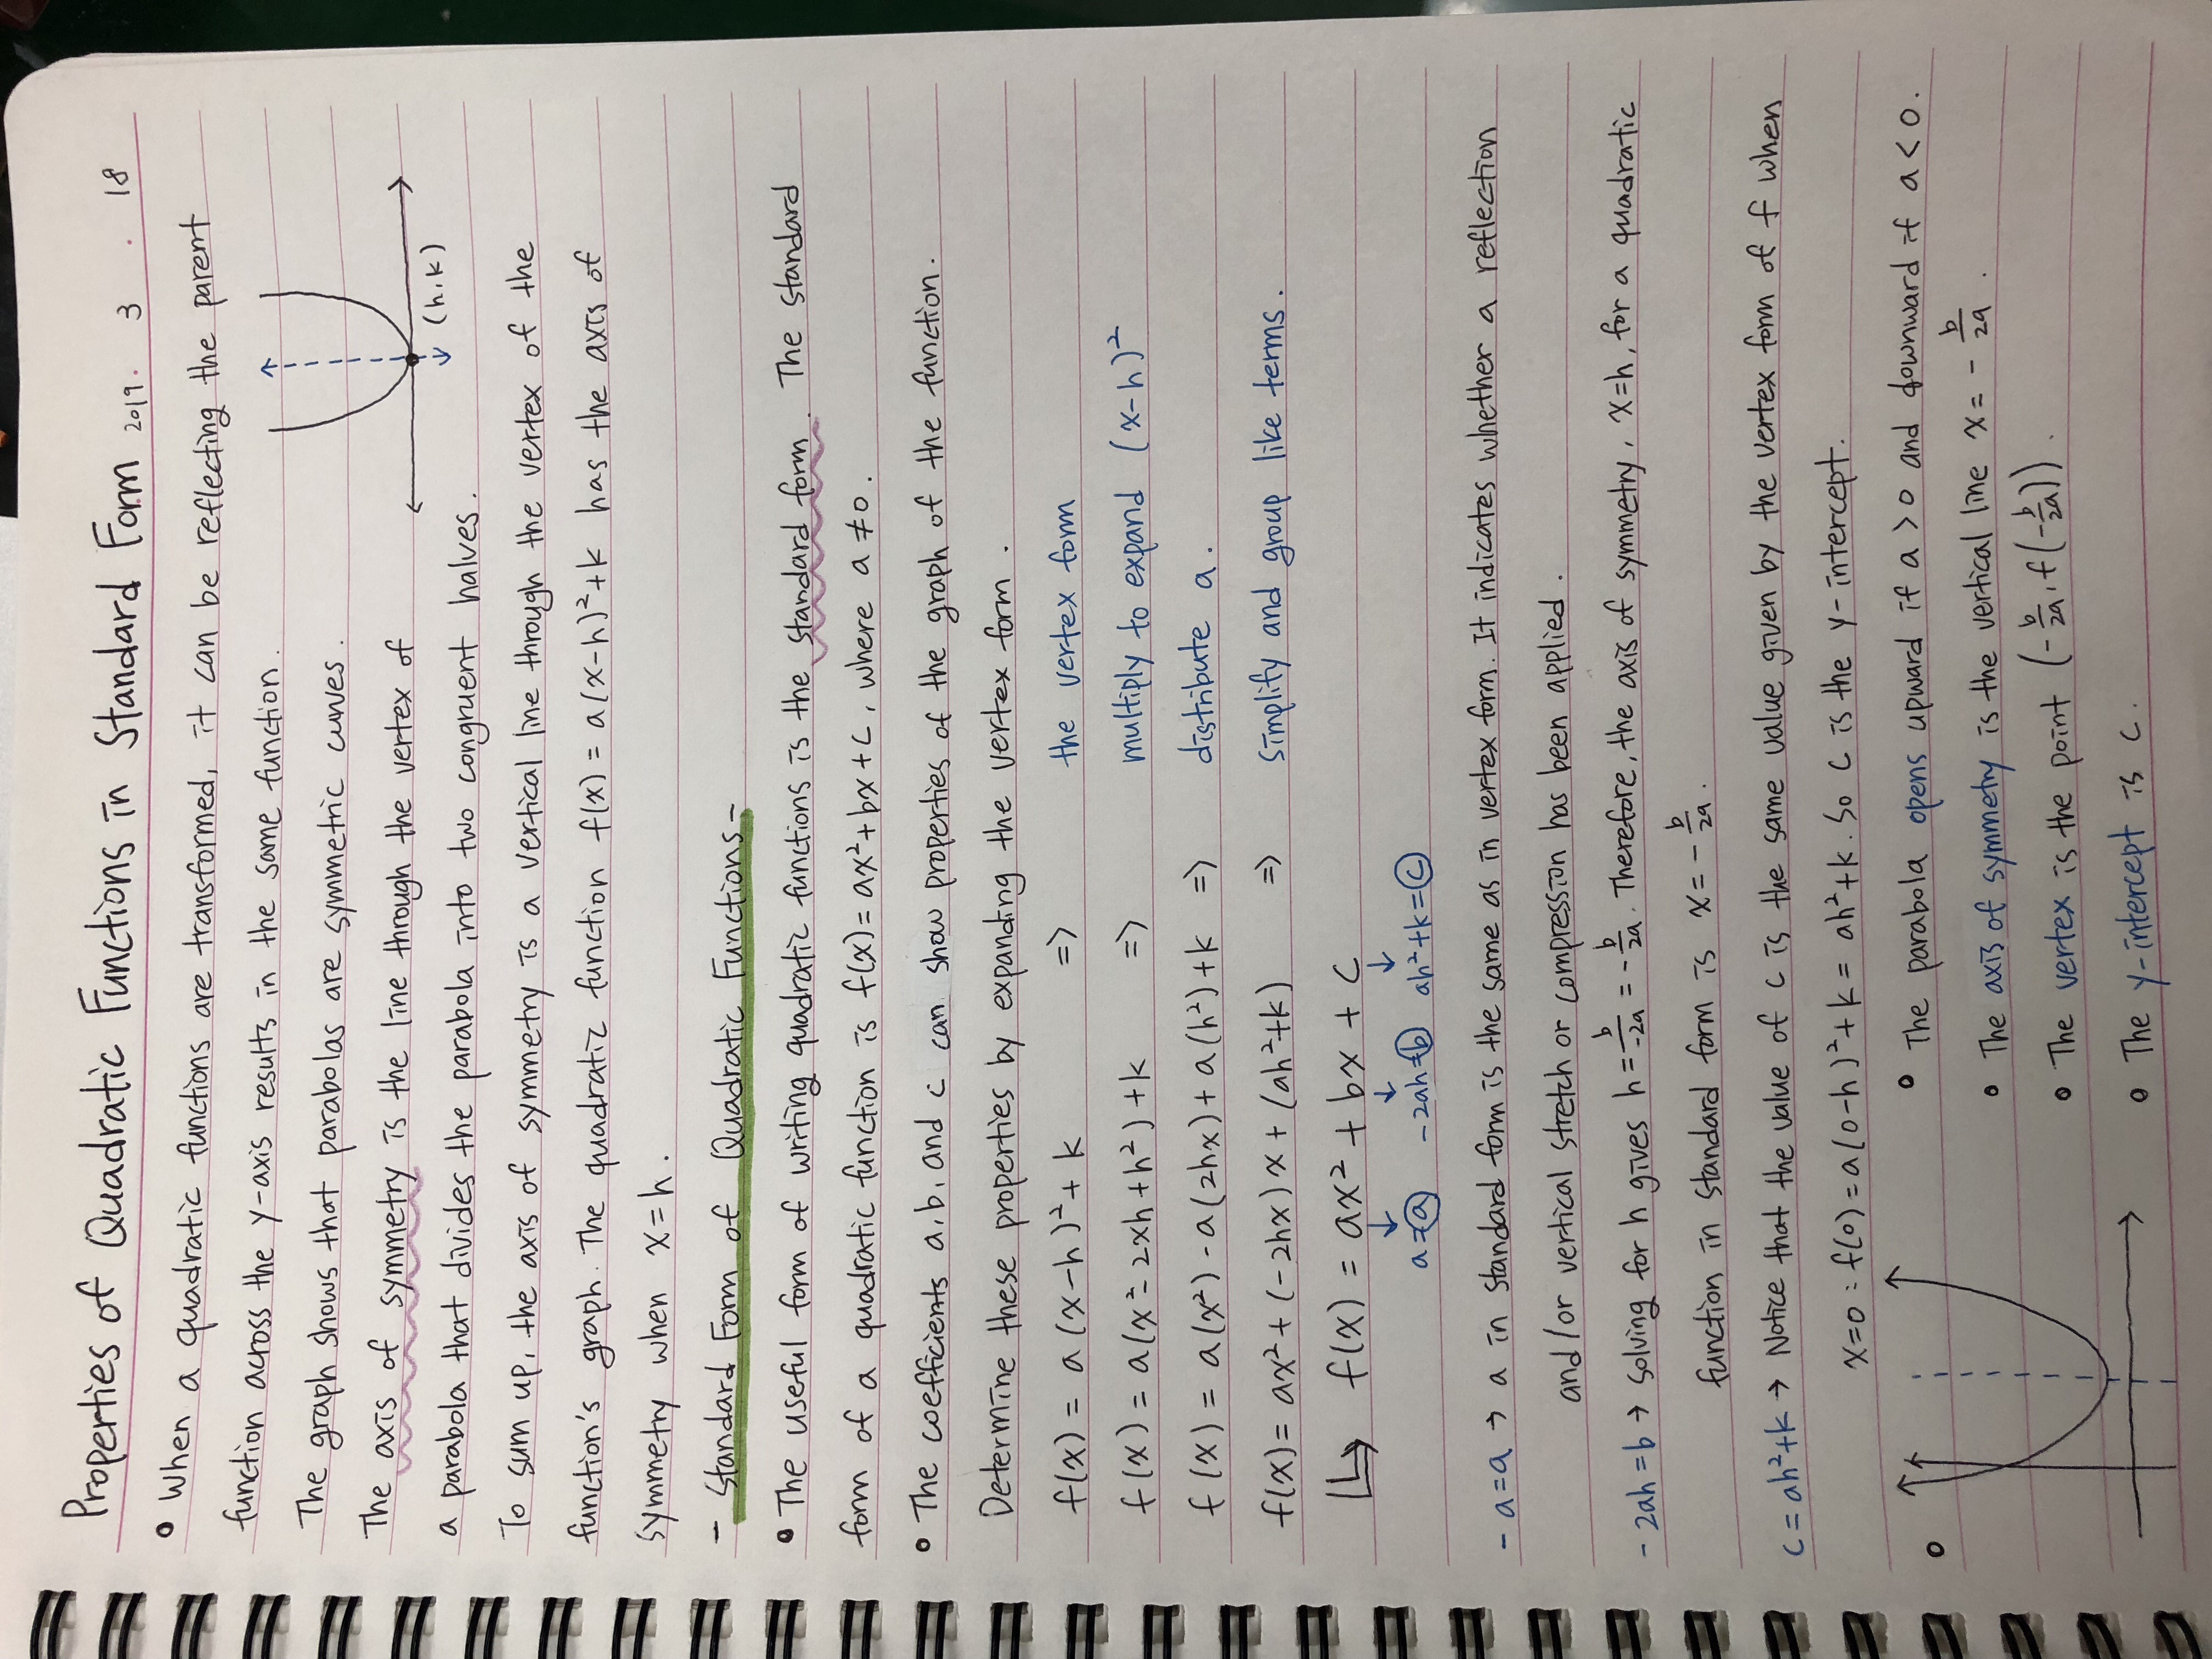 Properties of Quadratic Functions in Standard Form 2019. 3. 18
• When a quadratic functions are transformed, it can be reflecting the parent
function across the y-axis results in the same function.
The graph shows that parabolas are symmetric curves.
The axis of symmetry is the line through the vertex of
(h,k)
a parabola that divides the parabola into two congruent halves.
To sum up, the axis of symmetry is a vertical line through the vertex of the
function's graph. The quadratic function f(x) = a(x-h)²+k has the axis of
symmetry when x=h.
- Standard Form of Quadratic Functions -
• The useful form of writing quadratic functions is the standard form. The standard
form of a quadratic function is f(x)= ax²+bx+c, where a≠0.
• The coefficients a, b, and c can show properties of the graph of the function.
Determine these properties by expanding the vertex form.
f(x) = a(x-h)²+k => the vertex form
f(x) = a(x²-2xh+h²)+k => multiply to expand (x-h)²
f(x) = a(x²)-a(2hx)+a(h²)+k => distribute a.
f(x)= ax²+(-2hx)x+(ah²+k) => simplify and group like terms.
↳ f(x) = ax²+bx+c
↓ ↓ ↓
a=a -2ah=b ah²+k=c
- a=a → a in standard form is the same as in vertex form. It indicates whether a reflection
and/or vertical stretch or compression has been applied.
- 2ah=b → solving for h gives h=b/-2a = -b/2a. Therefore, the axis of symmetry, x=h, for a quadratic
function in standard form is x=-b/2a.
c=ah²+k → Notice that the value of c is the same value given by the vertex form of f when
x=0 : f(0)=a(0-h)²+k=ah²+k. So c is the y-intercept.
• The parabola opens upward if a>0 and downward if a<0.
• The axis of symmetry is the vertical line x=-b/2a.
• The vertex is the point (-b/2a, f(-b/2a)).
• The y-intercept is c.